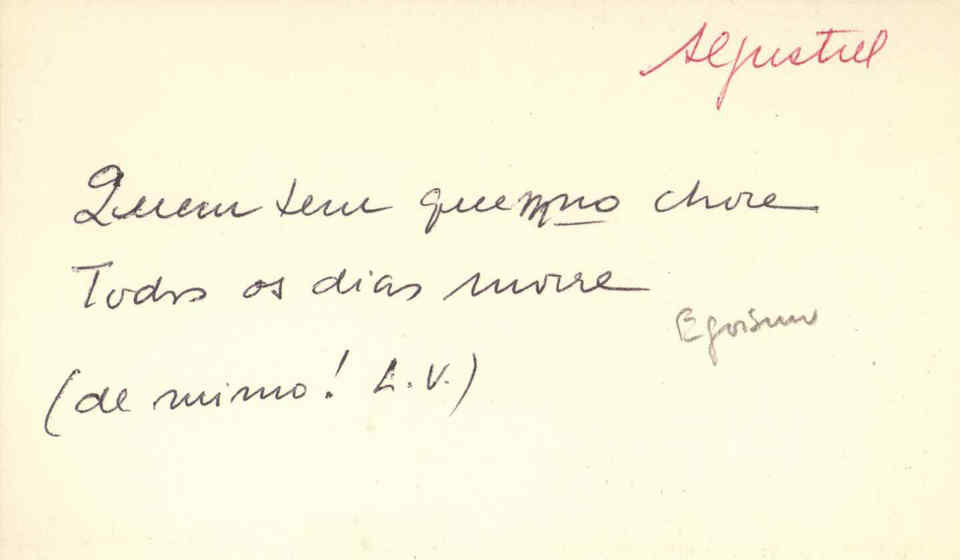 Aljustrel
Quem tem quem no chore
Todos os dias morre
Egoísmo
(de mimo! L.V.)